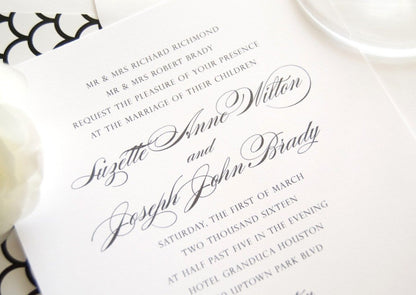 MR & MRS RICHARD RICHMOND
MR & MRS ROBERT BRADY
REQUEST THE PLEASURE OF YOUR PRESENCE
AT THE MARRIAGE OF THEIR CHILDREN
Suzette Anne Wilton
and
Joseph John Brady
SATURDAY, THE FIRST OF MARCH
TWO THOUSAND SIXTEEN
AT HALF PAST FIVE IN THE EVENING
HOTEL GRANDUCA HOUSTON
UPTOWN PARK BLVD